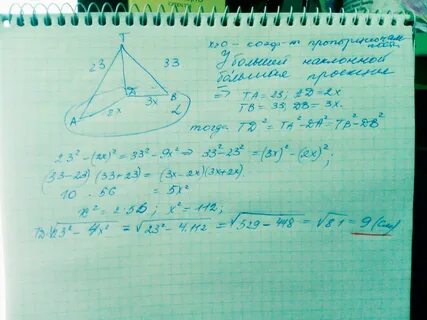 T
23
33
D
3x
B
A
2x
α
x>0 – коэф-т пропорциональ-
ности
У большей наклонной
большая проекция
⇒ TA = 23; AD = 2x
TB = 33; DB = 3x.
тогда TD² = TA² – DA² = TB² – DB²
23² – (2x)² = 33² – 9x² ⇒ 33² – 23² = (3x)² – (2x)²;
(33–23)(33+23) = (3x–2x)(3x+2x).
10 · 56 = 5x²
x² = 2·56; x² = 112;
TD = √23² – 4x² = √23² – 4·112 = √529 – 448 = √81 = 9 (см)